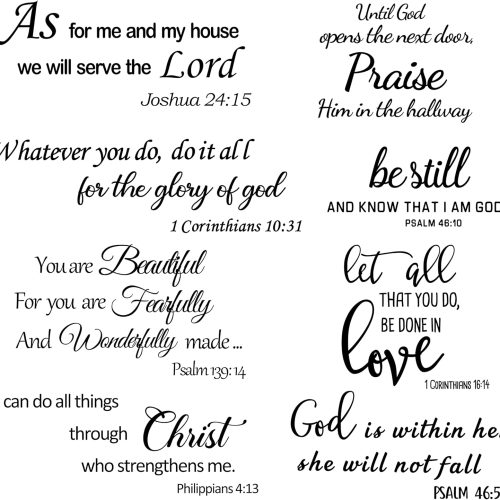 As for me and my house
we will serve the Lord
Joshua 24:15
Until God
opens the next door,
Praise
Him in the hallway
Whatever you do, do it all
for the glory of god
1 Corinthians 10:31
be still
AND KNOW THAT I AM GOD
PSALM 46:10
You are Beautiful
For you are Fearfully
And Wonderfully made...
Psalm 139:14
let all
THAT YOU DO,
BE DONE IN
love
1 CORINTHIANS 16:14
can do all things
through Christ
who strengthens me.
Philippians 4:13
God is within he
she will not fall
PSALM 46:5